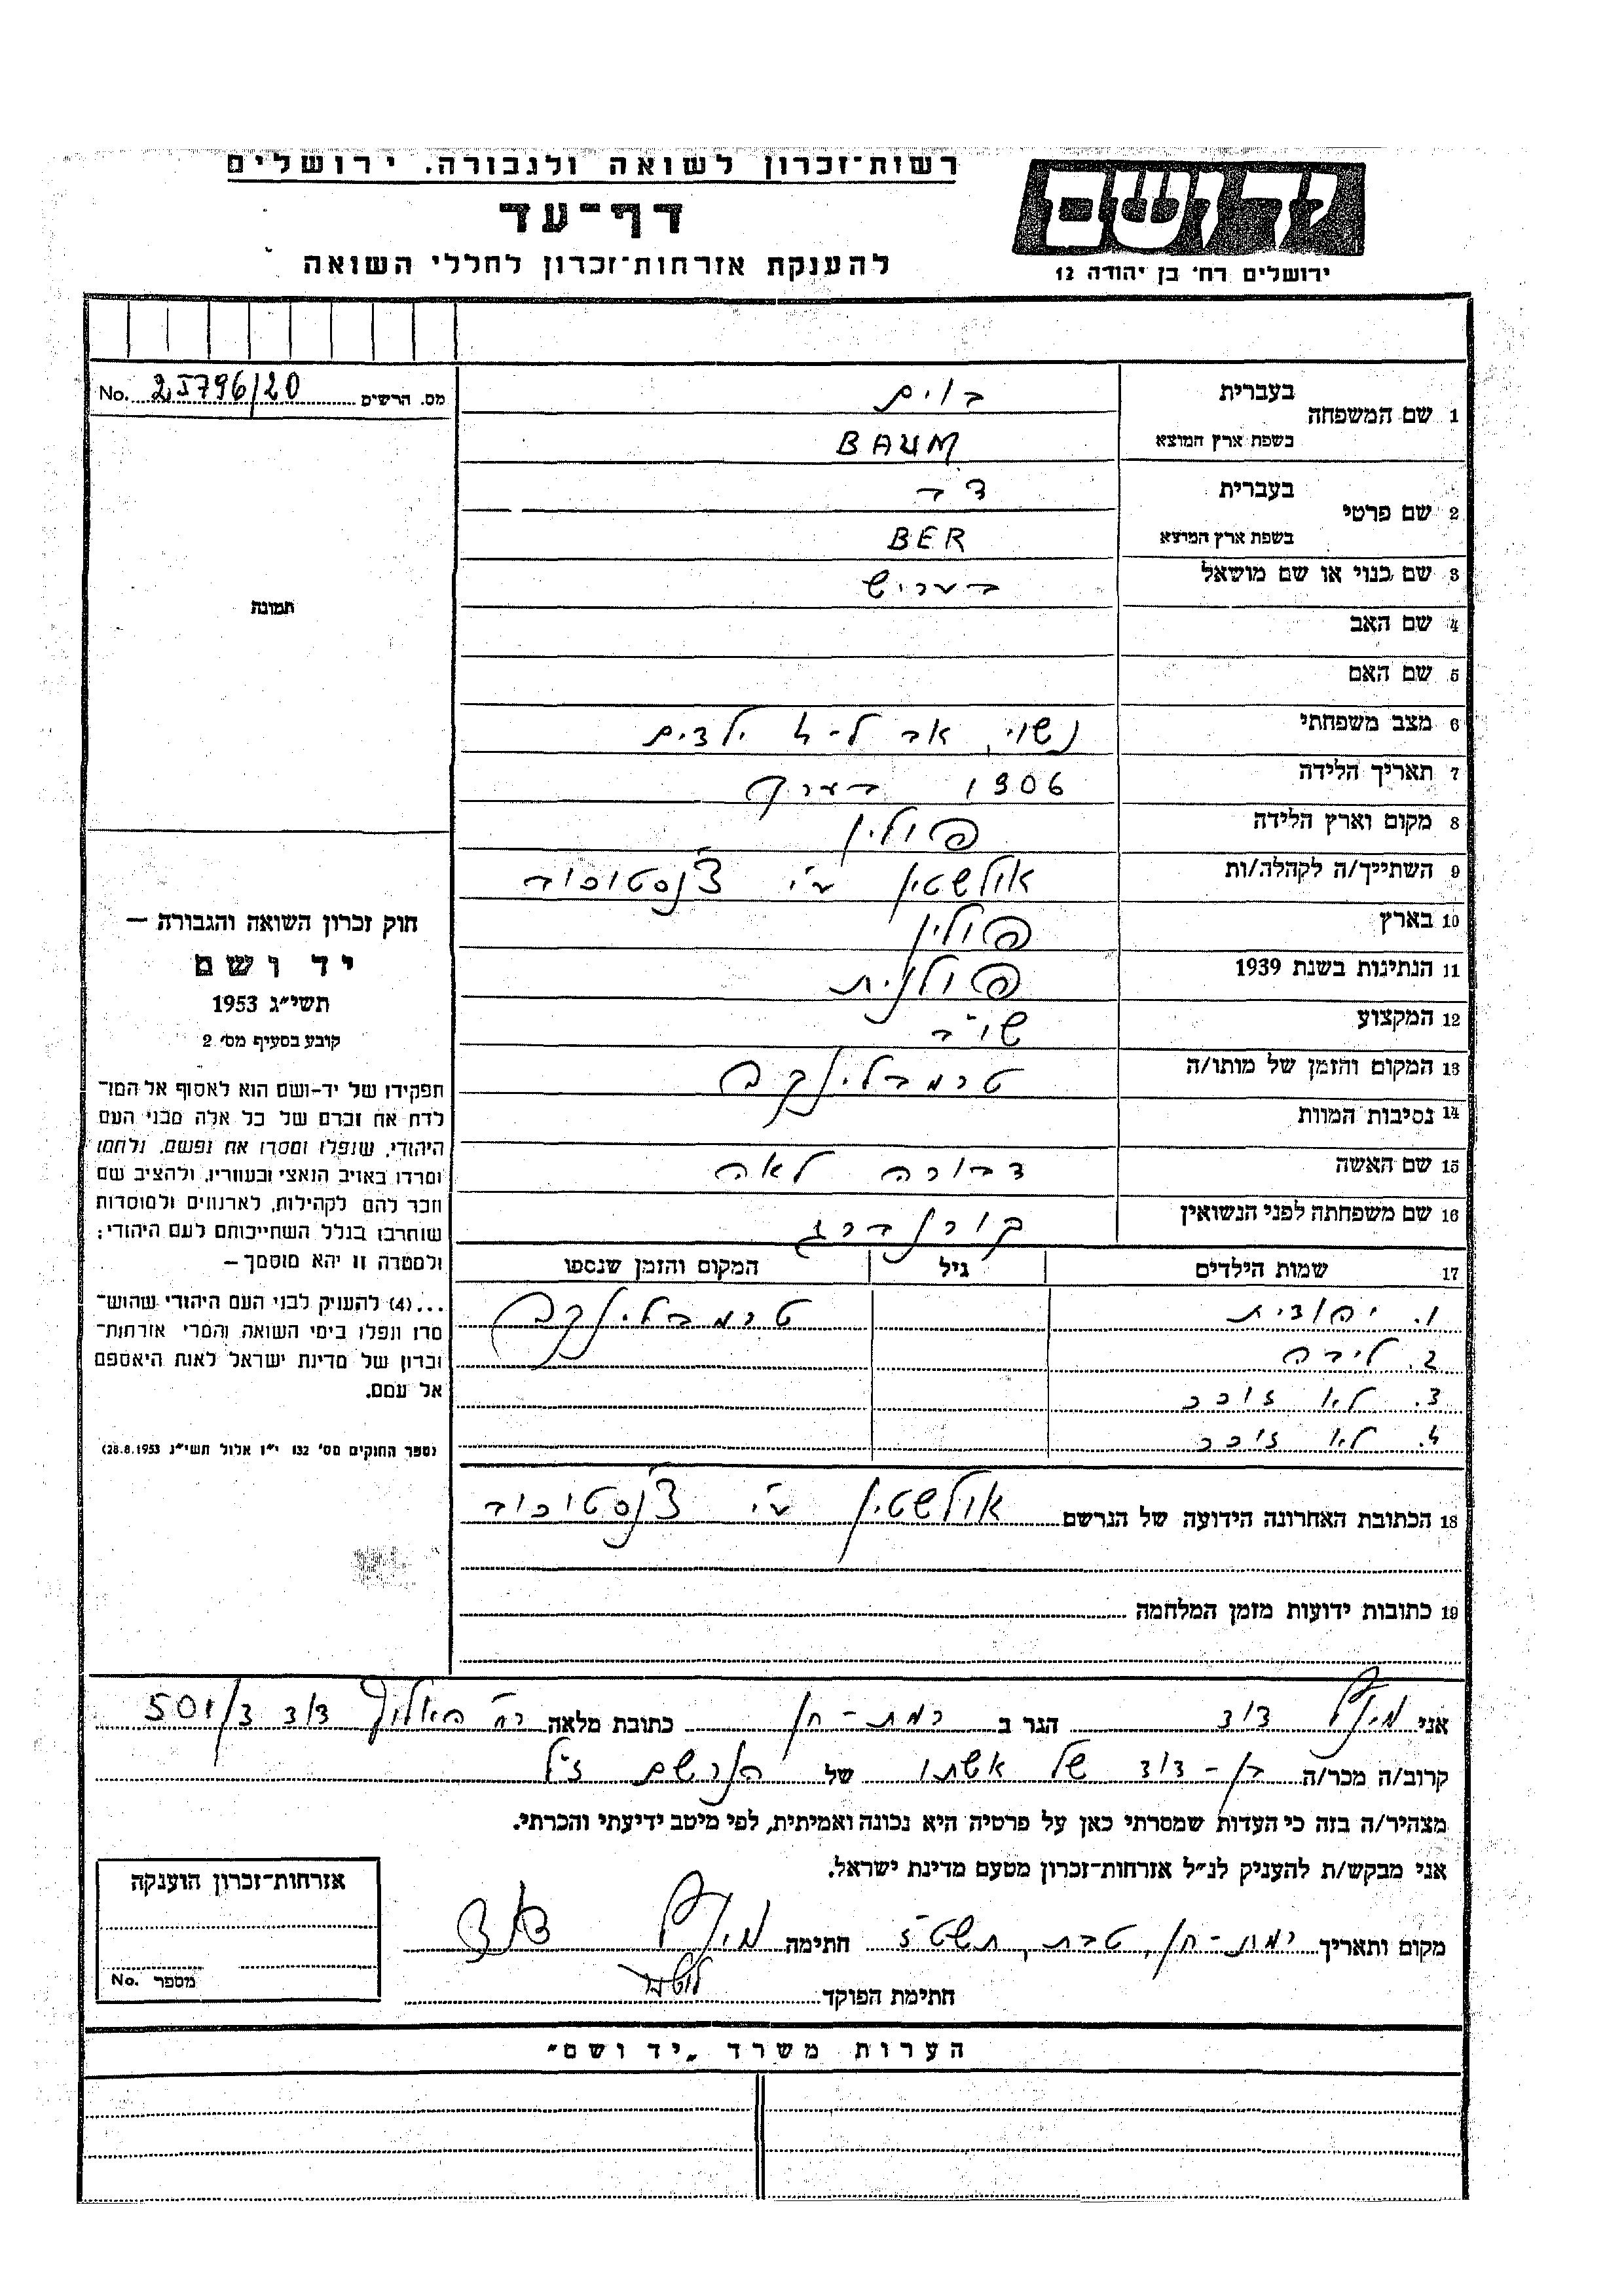 רשות־זכרון לשואה ולגבורה. ירושלים
יד ושם
דף־עד
להענקת אזרחות־זכרון לחללי השואה
ירושלים רח׳ בן יהודה 12
מס. הרשים No. 25796/20
1 שם המשפחה בעברית בוים
בשפת ארץ המוצא BAUM
2 שם פרטי בעברית דב
בשפת ארץ המוצא BER
3 שם כנוי או שם מושאל בעריש
4 שם האב
5 שם האם
6 מצב משפחתי נשוי, אב ל-4 ילדים
7 תאריך הלידה 1906 בערך
8 מקום וארץ הלידה פולין
9 השתייך/ה לקהלה/ות אולשטין ע"י צ'נסטוכוב
10 בארץ פולין
11 הנתינות בשנת 1939 פולנית
12 המקצוע שו"ב
13 המקום והזמן של מותו/ה טרמבלינקה
14 נסיבות המוות
15 שם האשה דבורה לאה
16 שם משפחתה לפני הנשואין קורנברג
17 שמות הילדים גיל המקום והזמן שנספו
1. יהודית טרמבלינקה
2. ליבה
3. לא זוכר
4. לא זוכר
18 הכתובת האחרונה הידועה של הנרשם אולשטין ע"י צ'נסטוכוב
19 כתובות ידועות מזמן המלחמה
תמונת
חוק זכרון השואה והגבורה —
יד ושם
תשי״ג 1953
קובע בסעיף מס׳ 2
תפקידו של יד־ושם הוא לאסוף אל המו־
לדת את זכרם של כל אלה מבני העם
היהודי, שנפלו ומסרו את נפשם, נלחמו
ומרדו באויב הנאצי ובעוזריו, ולהציב שם
וזכר להם לקהילות, לארגונים ולמוסדות
שנחרבו בגלל השתייכותם לעם היהודי;
ולמטרה זו יהא מוסמך —
...(4) להעניק לבני העם היהודי שהוש־
מדו ונפלו בימי השואה והמרי אזרחות־
זכרון של מדינת ישראל לאות היאספם
אל עמם.
(ספר החוקים מס׳ 132 י״ז אלול תשי״ג 28.8.1953)
אני דוד הגר ב רמת-חן כתובת מלאה רח' האלוף דוד 501
קרוב/ה מכר/ה בן-דוד של אשתו של הנרשם ז"ל
מצהיר/ה בזה כי העדות שמסרתי כאן על פרטיה היא נכונה ואמיתית, לפי מיטב ידיעתי והכרתי.
אני מבקש/ת להעניק לנ״ל אזרחות־זכרון מטעם מדינת ישראל.
מקום ותאריך רמת-חן, טבת, תשט"ז חתימה דוד
חתימת הפוקד
אזרחות־זכרון הוענקה
מספר No.
הערות משרד „יד ושם״